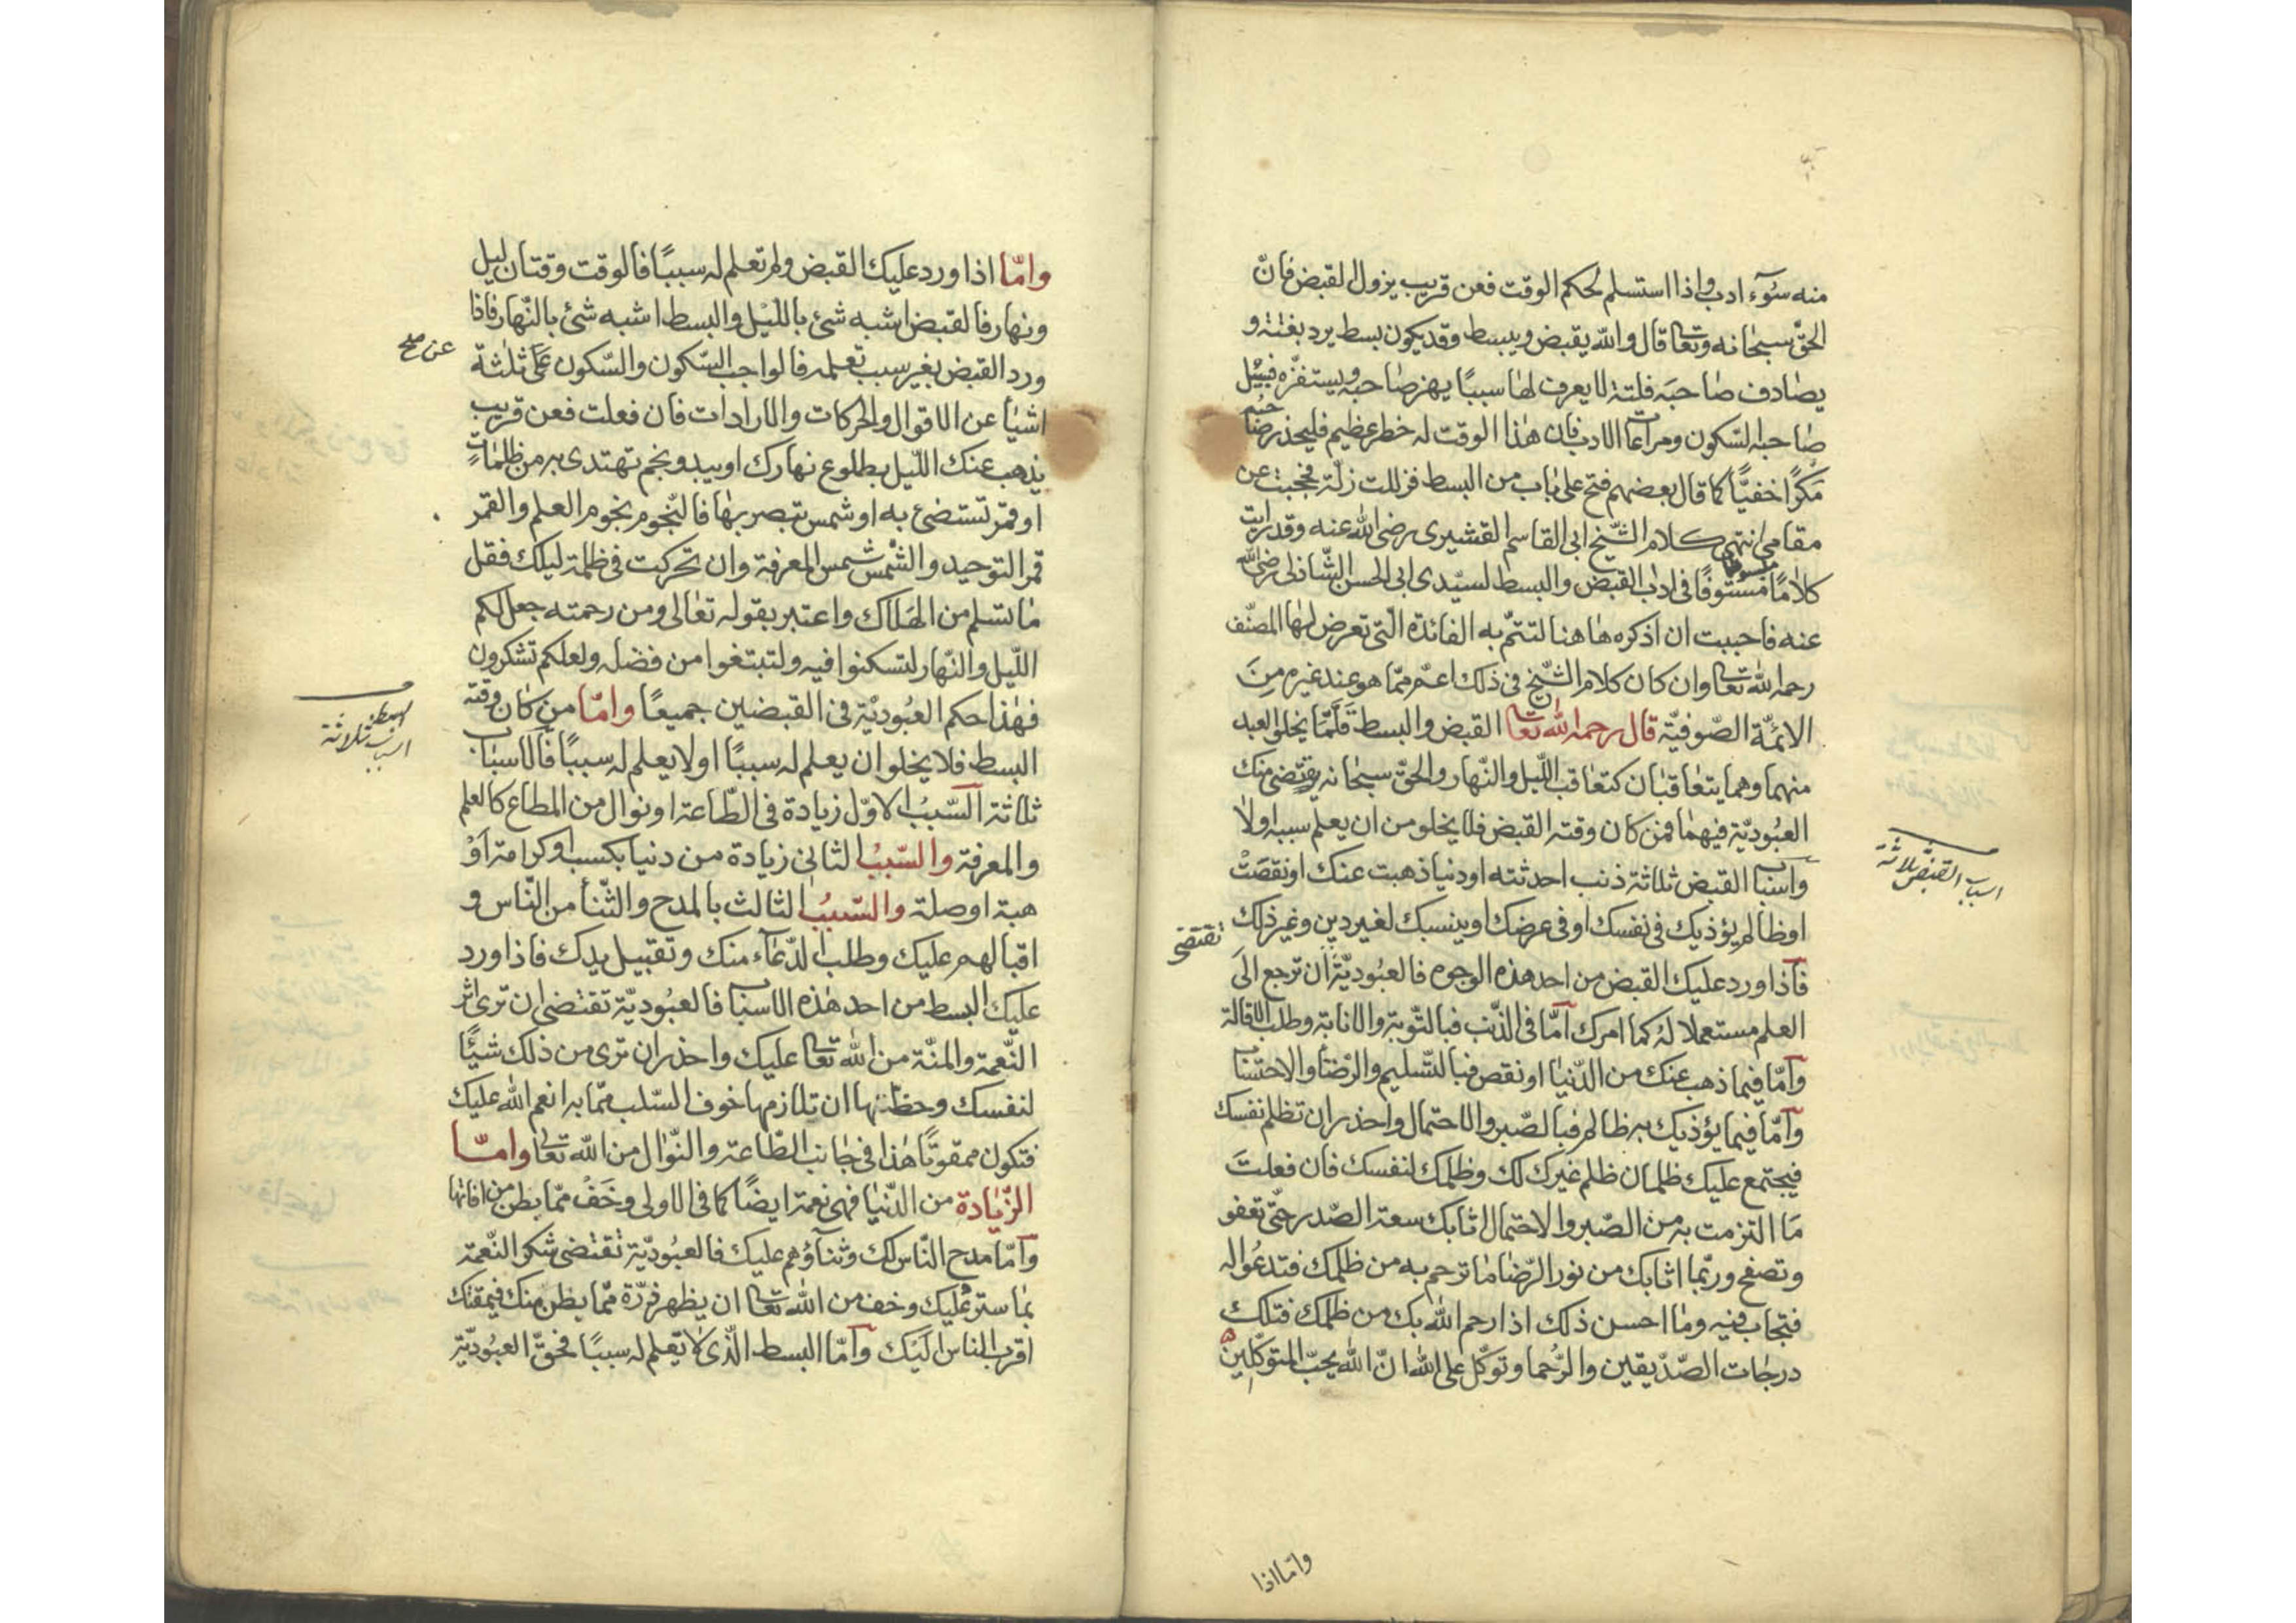 منه سوٓء ادب واذا استسلم لحكم الوقت فعن قريب يزول القبض فانّ
الحقّ سبحانه وتعا قال والله يقبض ويبسط وقد يكون بسط يرد بغتة و
يصادف صاحبه فلتة لا يعرف لها سببًا يهز صاحبه ويستفزّه فسبيل
صاحبه السّكون ومراعاة الادب فان هذا الوقت له خطر عظيم فليحذر صاحبه
مكرًا خفيًّا كما قال بعضهم فتح على باب من البسط فزللت زلّة فحجبت عن
مقامى انتهى كلام الشّيخ ابى القاسم القشيرى رضى الله عنه وقد رايت
كلامًا مبسوطا مستوفًا فى اداب القبض والبسط لسيّدى ابى الحسن الشّاذلى رضى الله
عنه فاحببت ان اذكره هاهنا لتتمّ به الفائدة الّتى تعرض لها المصنّف
رحمه الله تعا وان كان كلام الشّيخ فى ذلك اعمّ ممّا هو عند غيره من
الائمّة الصّوفيّة قال رحمه الله تعا القبض والبسط قلّما يخلو العبد
منهما وهما يتعاقبان كتعاقب اللّيل والنّهار والحقّ سبحانه يقتضى منك
العبوديّة فيهما فمن كان وقته القبض فلا يخلو من ان يعلم سببه اولا
واسباب القبض ثلاثة ذنب احدثته او دنيا ذهبت عنك او نقصت
اسباب القبض ثلاثة
او ظالم يؤذيك فى نفسك او فى عرضك او ينسبك لغير دين وغير ذلك
تقتضى
فاذا ورد عليك القبض من احد هذه الوجوه فالعبوديّة ان ترجع الى
العلم مستعملا له كما امرك امّا فى الذّنب فبالتّوبة والانابة وطلب الاقالة
وامّا فيما ذهب عنك من الدّنيا او نقص فبالتّسليم والرّضا والاحتساب
وامّا فيما يؤذيك به ظالم فبالصّبر والاحتمال واحذر ان تظلم نفسك
فيجتمع عليك ظلمان ظلم غيرك لك وظلمك لنفسك فان فعلت
ما التزمت به من الصّبر والاحتمال اثابك سعة الصّدر حتّى تعفو
وتصفح وربّما اثابك من نور الرّضا ما ترحم به من ظلمك فتدعو له
فتجاب فيه وما احسن ذلك اذا رحم الله بك من ظلمك فتلك
درجات الصّدّيقين والرّحما وتوكّل على الله انّ الله يحبّ المتوكّلين
وامّا اذا
وامّا اذا ورد عليك القبض ولم تعلم له سببًا فالوقت وقتان ليل
ونهار فالقبض اشبه شئ باللّيل والبسط اشبه شئ بالنّهار فاذا
عن صح
ورد القبض بغير سبب تعلمه فالواجب السّكون والسّكون على ثلثة
اشيأ عن الاقوال والحركات والارادات فان فعلت فعن قريب
يذهب عنك اللّيل بطلوع نهارك او يبدو نجم تهتدى به من ظلمات
او قمر تستضئ به او شمس تبصر بها فالنّجوم نجوم العلم والقمر
قمر التوحيد والشّمس شمس المعرفة وان تحركت فى ظلمة ليلك فقل
ما تسلم من الهلاك واعتبر بقوله تعالى ومن رحمته جعل لكم
اللّيل والنّهار لتسكنوا فيه ولتبتغوا من فضله ولعلكم تشكرون
فهذا حكم العبوديّة فى القبضين جميعًا وامّا من كان وقته
البسط فلا يخلو ان يعلم له سببًا او لا يعلم له سببًا فالاسباب
اسباب البسط ثلاثة
ثلاثة السّبب الاوّل زيادة فى الطّاعة او نوال من المطاع كالعلم
والمعرفة والسّبب الثانى زيادة من دنيا بكسب او كرامة او
هبة او صلة والسّبب الثالث بالمدح والثّنأ من النّاس و
اقبالهم عليك وطلب الدّعآء منك وتقبيل يدك فاذا ورد
عليك البسط من احد هذه الاسباب فالعبوديّة تقتضى ان ترى اثر
النّعمة والمنّة من الله تعا عليك واحذر ان ترى من ذلك شيئًا
لنفسك وحظّها ان تلازمها خوف السّلب ممّا به انعم الله عليك
فتكون ممقوتًا هذا فى جانب الطّاعة والنّوال من الله تعا وامّا
الزّيادة من الدّنيا فهى نعمة ايضًا كما فى الاولى وخف ممّا بطن من افاتها
وامّا مدح النّاس لك وثناؤهم عليك فالعبوديّة تقتضى شكر النّعمة
بما ستر عليك وخف من الله تعا ان يظهر ذرّة ممّا بطن منك فيمقتك
اقرب الناس اليك وامّا البسط الّذى لا تعلم له سببًا فحقّ العبوديّة